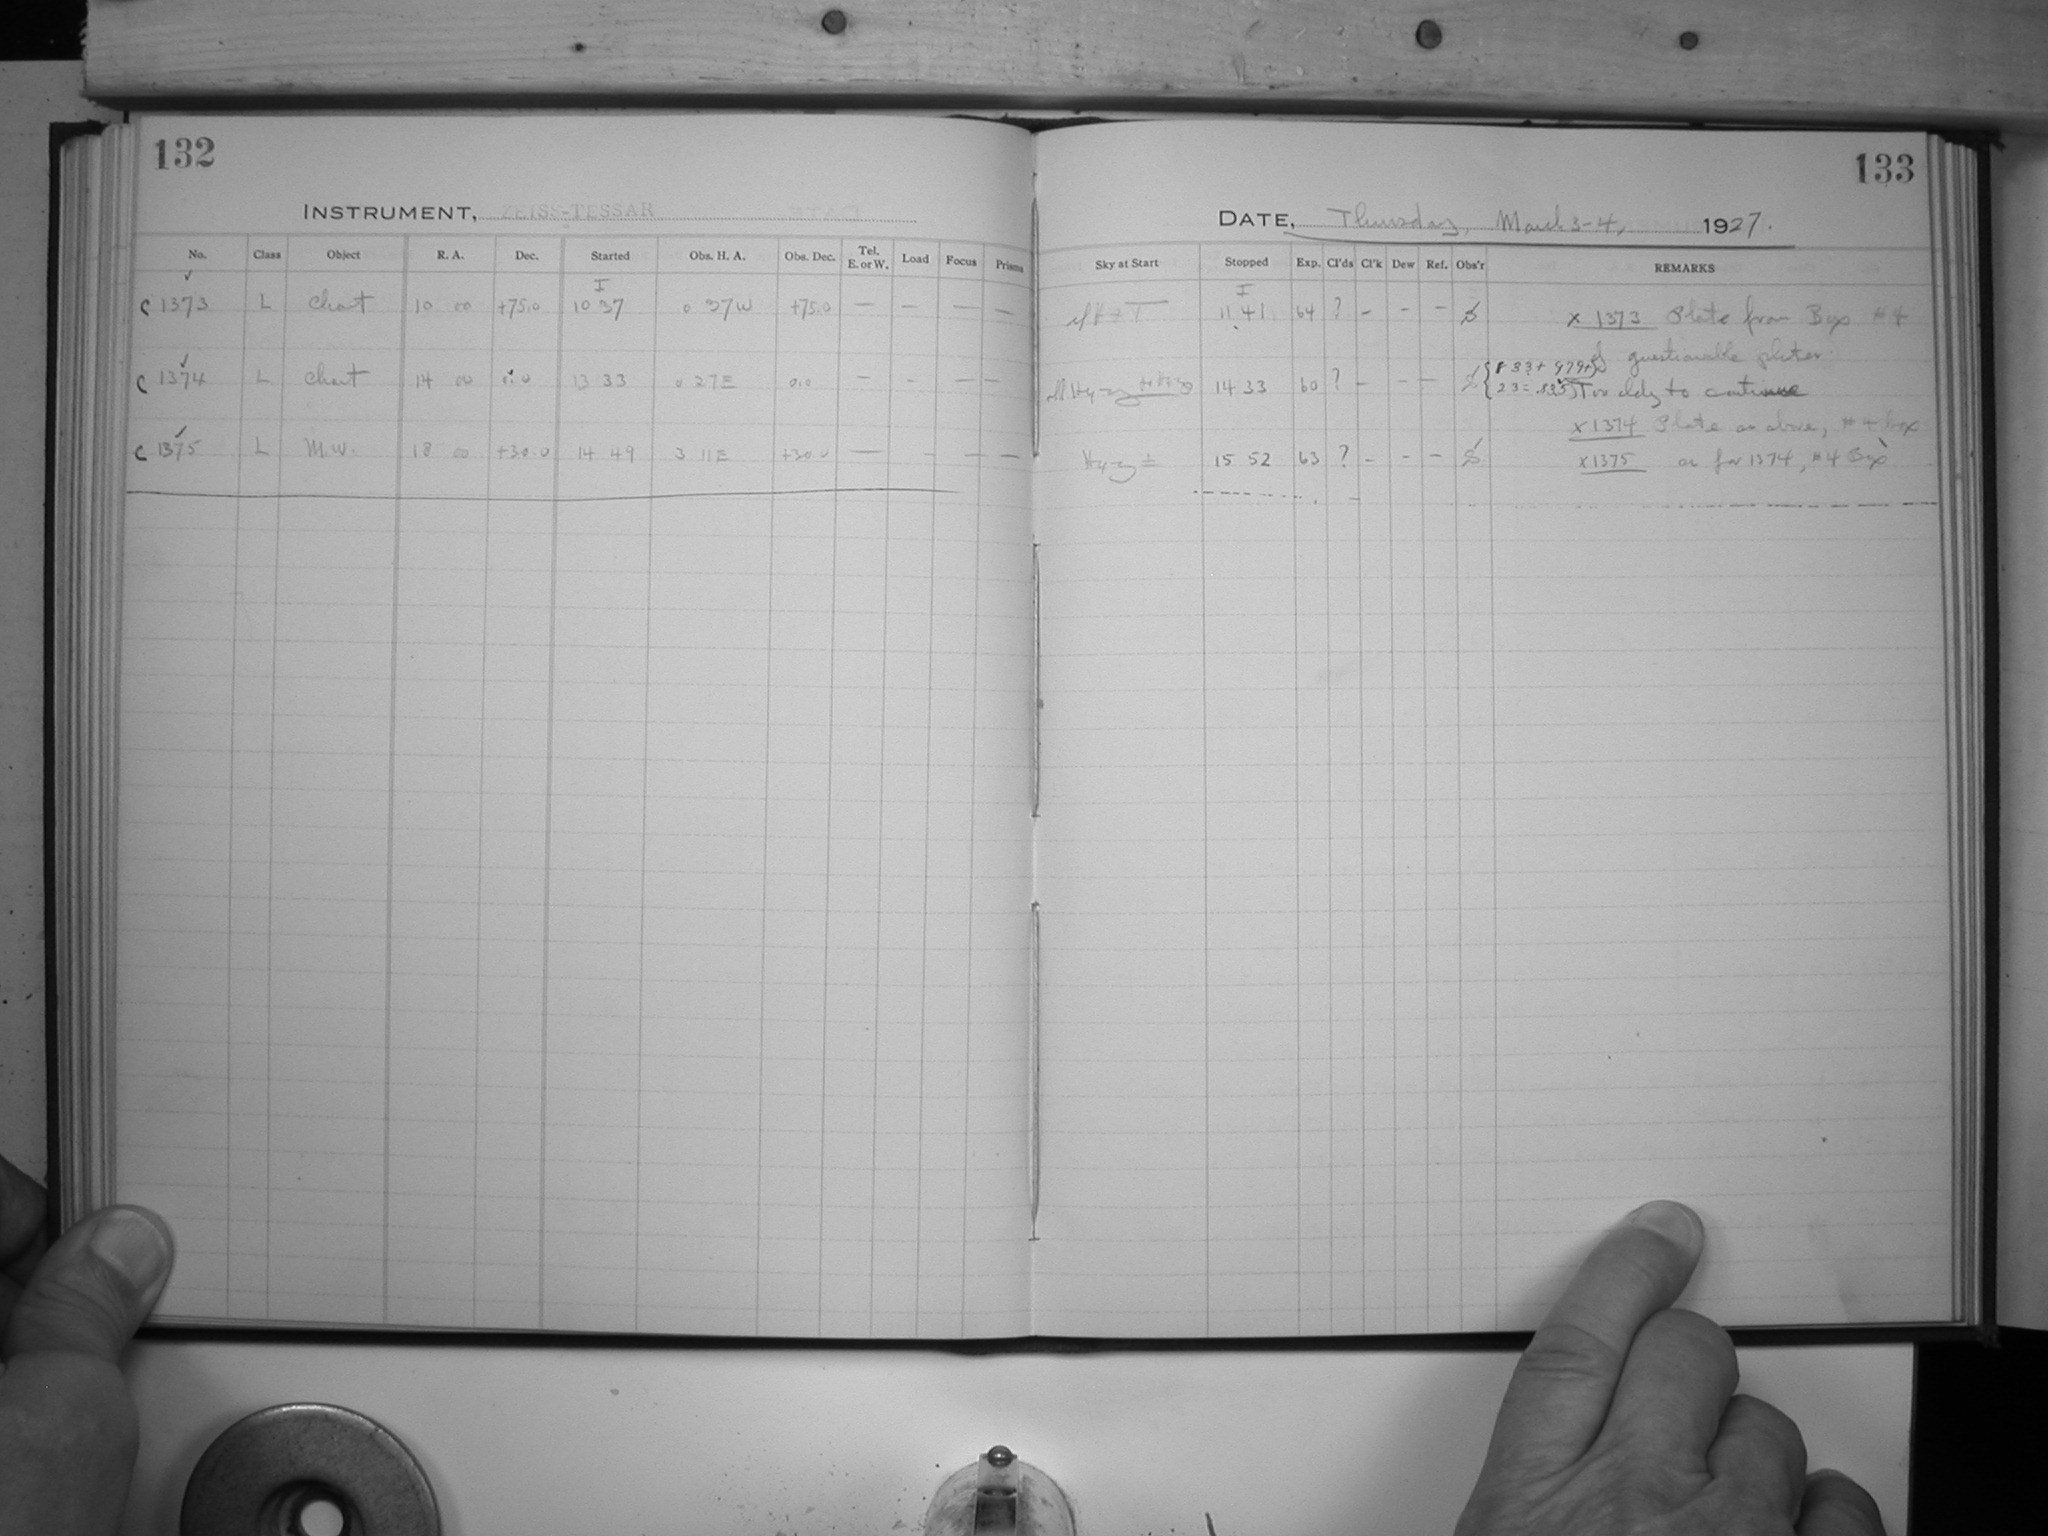 132
INSTRUMENT, ZEISS-TESSAR
No. Class Object R. A. Dec. Started Obs. H. A. Obs. Dec. Tel. E. or W. Load Focus Prisms
I
C 1373 L Chart 10 00 +75.0 10 37 0 27W +75.0 — — — —
C 1374 L Chart 14 00 0.0 13 33 0 27E 0.0 — - — —
C 1375 L M.W. 18 00 +30.0 14 49 3 11E +30.0 — - - —
133
DATE, Thursday, March 3-4, 1927.
Sky at Start Stopped Exp. Cl'ds Cl'k Dew Ref. Obs'r REMARKS
I
11 41 64 ? - - - x 1373 Plate from Box #4
of questionable plates
Hy-zy 14 33 60 ? - - — Too cldy to continue
x 1374 Plate as above, #4 box
Hy-zy ± 15 52 63 ? - - - x 1375 as for 1374, #4 Box